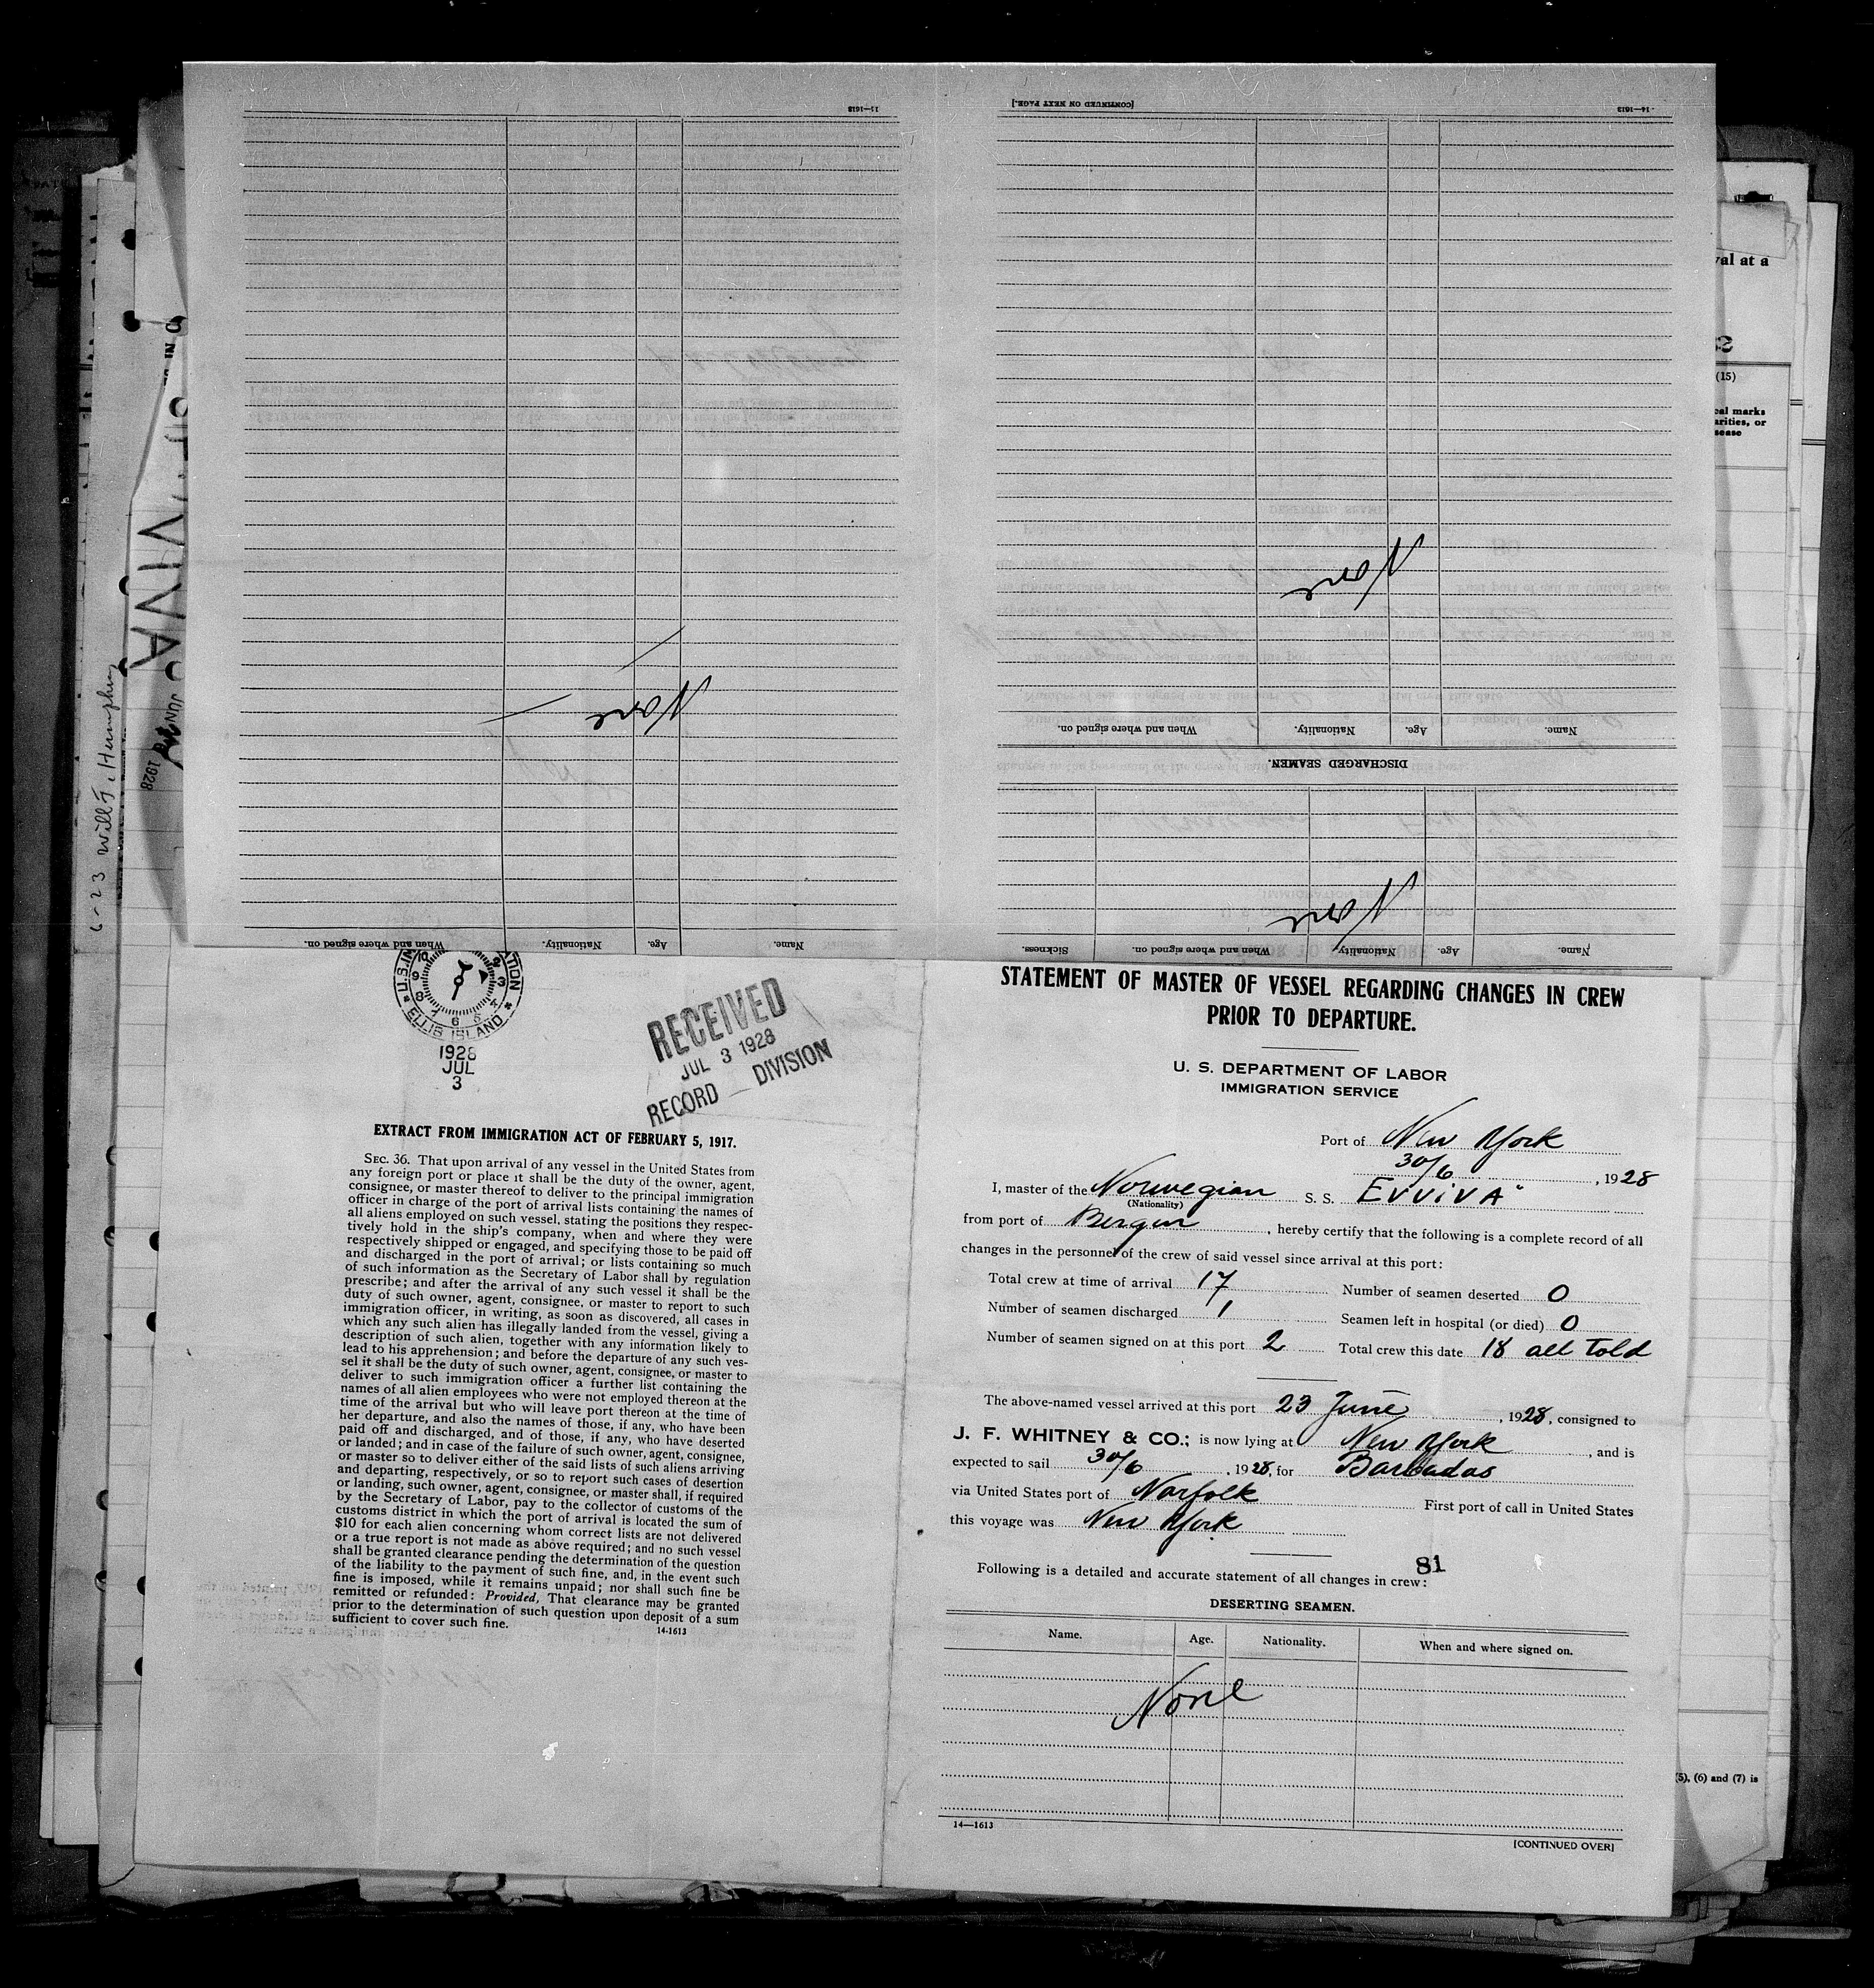 14—1613
[CONTINUED ON NEXT PAGE.]
None
When and where signed on.
Nationality.
Age.
Name.
DISCHARGED SEAMEN.
None
Sickness.
When and where signed on.
Nationality.
Age.
Name.
11—1613
None
When and where signed on.
Nationality.
Age.
Name.
val at a
(15)
cal marks
arities, or
sease
(5), (6) and (7) is
VIVA
JUN
1928
6-23 Will J. Humphrey
U.S. IM
ATION
ELLIS ISLAND
10
2
9
3
8
4
7
6
5
1928
JUL
3
RECEIVED
JUL 3 1928
RECORD DIVISION
EXTRACT FROM IMMIGRATION ACT OF FEBRUARY 5, 1917.
SEC. 36. That upon arrival of any vessel in the United States from
any foreign port or place it shall be the duty of the owner, agent,
consignee, or master thereof to deliver to the principal immigration
officer in charge of the port of arrival lists containing the names of
all aliens employed on such vessel, stating the positions they respec-
tively hold in the ship's company, when and where they were
respectively shipped or engaged, and specifying those to be paid off
and discharged in the port of arrival; or lists containing so much
of such information as the Secretary of Labor shall by regulation
prescribe; and after the arrival of any such vessel it shall be the
duty of such owner, agent, consignee, or master to report to such
immigration officer, in writing, as soon as discovered, all cases in
which any such alien has illegally landed from the vessel, giving a
description of such alien, together with any information likely to
lead to his apprehension; and before the departure of any such ves-
sel it shall be the duty of such owner, agent, consignee, or master to
deliver to such immigration officer a further list containing the
names of all alien employees who were not employed thereon at the
time of the arrival but who will leave port thereon at the time of
her departure, and also the names of those, if any, who have been
paid off and discharged, and of those, if any, who have deserted
or landed; and in case of the failure of such owner, agent, consignee,
or master so to deliver either of the said lists of such aliens arriving
and departing, respectively, or so to report such cases of desertion
or landing, such owner, agent, consignee, or master shall, if required
by the Secretary of Labor, pay to the collector of customs of the
customs district in which the port of arrival is located the sum of
$10 for each alien concerning whom correct lists are not delivered
or a true report is not made as above required; and no such vessel
shall be granted clearance pending the determination of the question
of the liability to the payment of such fine, and, in the event such
fine is imposed, while it remains unpaid; nor shall such fine be
remitted or refunded: Provided, That clearance may be granted
prior to the determination of such question upon deposit of a sum
sufficient to cover such fine.
14-1613
STATEMENT OF MASTER OF VESSEL REGARDING CHANGES IN CREW
PRIOR TO DEPARTURE.
U. S. DEPARTMENT OF LABOR
IMMIGRATION SERVICE
Port of New York
30/6, 1928
I, master of the Norwegian S. S. EVVIVA"
(Nationality)
from port of Bergen, hereby certify that the following is a complete record of all
changes in the personnel of the crew of said vessel since arrival at this port:
Total crew at time of arrival 17 Number of seamen deserted 0
Number of seamen discharged 1 Seamen left in hospital (or died) 0
Number of seamen signed on at this port 2 Total crew this date 18 all told
The above-named vessel arrived at this port 23 June, 1928, consigned to
J. F. WHITNEY & CO.; is now lying at New York, and is
expected to sail 30/6, 1928, for Barbados
via United States port of Norfolk First port of call in United States
this voyage was New York
81
Following is a detailed and accurate statement of all changes in crew:
DESERTING SEAMEN.
Name. Age. Nationality. When and where signed on.
None
14—1613
[CONTINUED OVER]